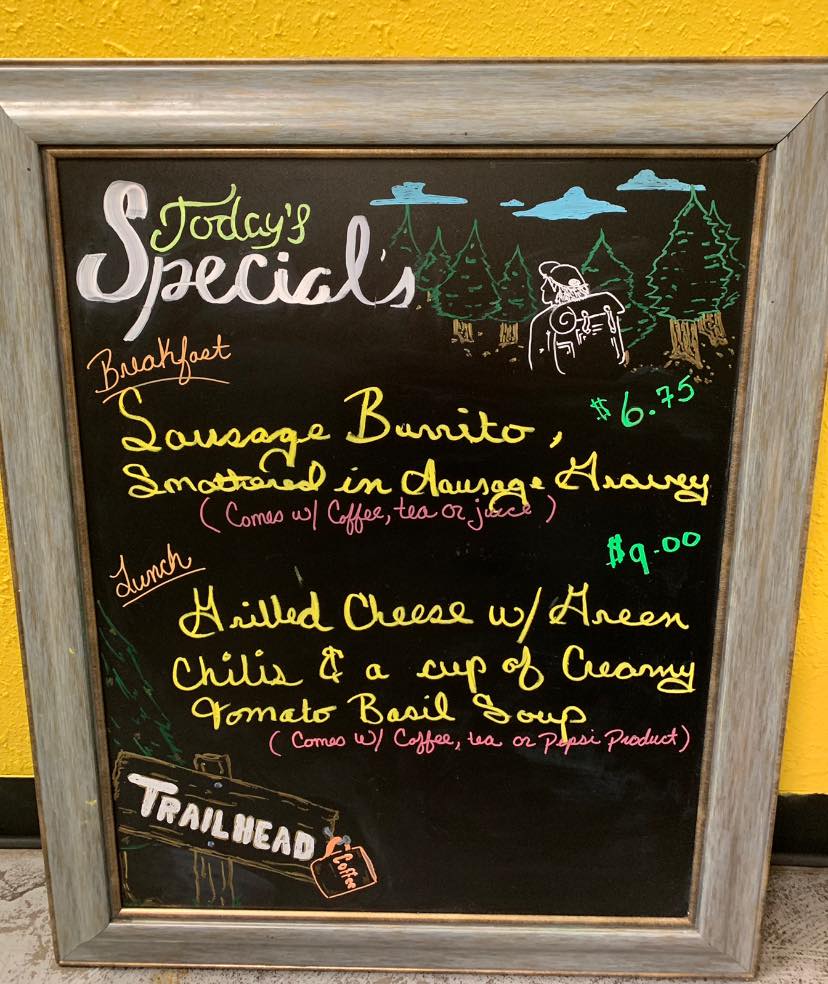 Today's
Special's
Breakfast
$6.75
Sausage Burrito,
Smothered in Sausage Gravey
(Comes w/ Coffee, tea or juice)
$9.00
Lunch
Grilled Cheese w/ Green
Chilis & a cup of Creamy
Tomato Basil Soup
(Comes w/ Coffee, tea or Pepsi Product)
TRAILHEAD
Coffee